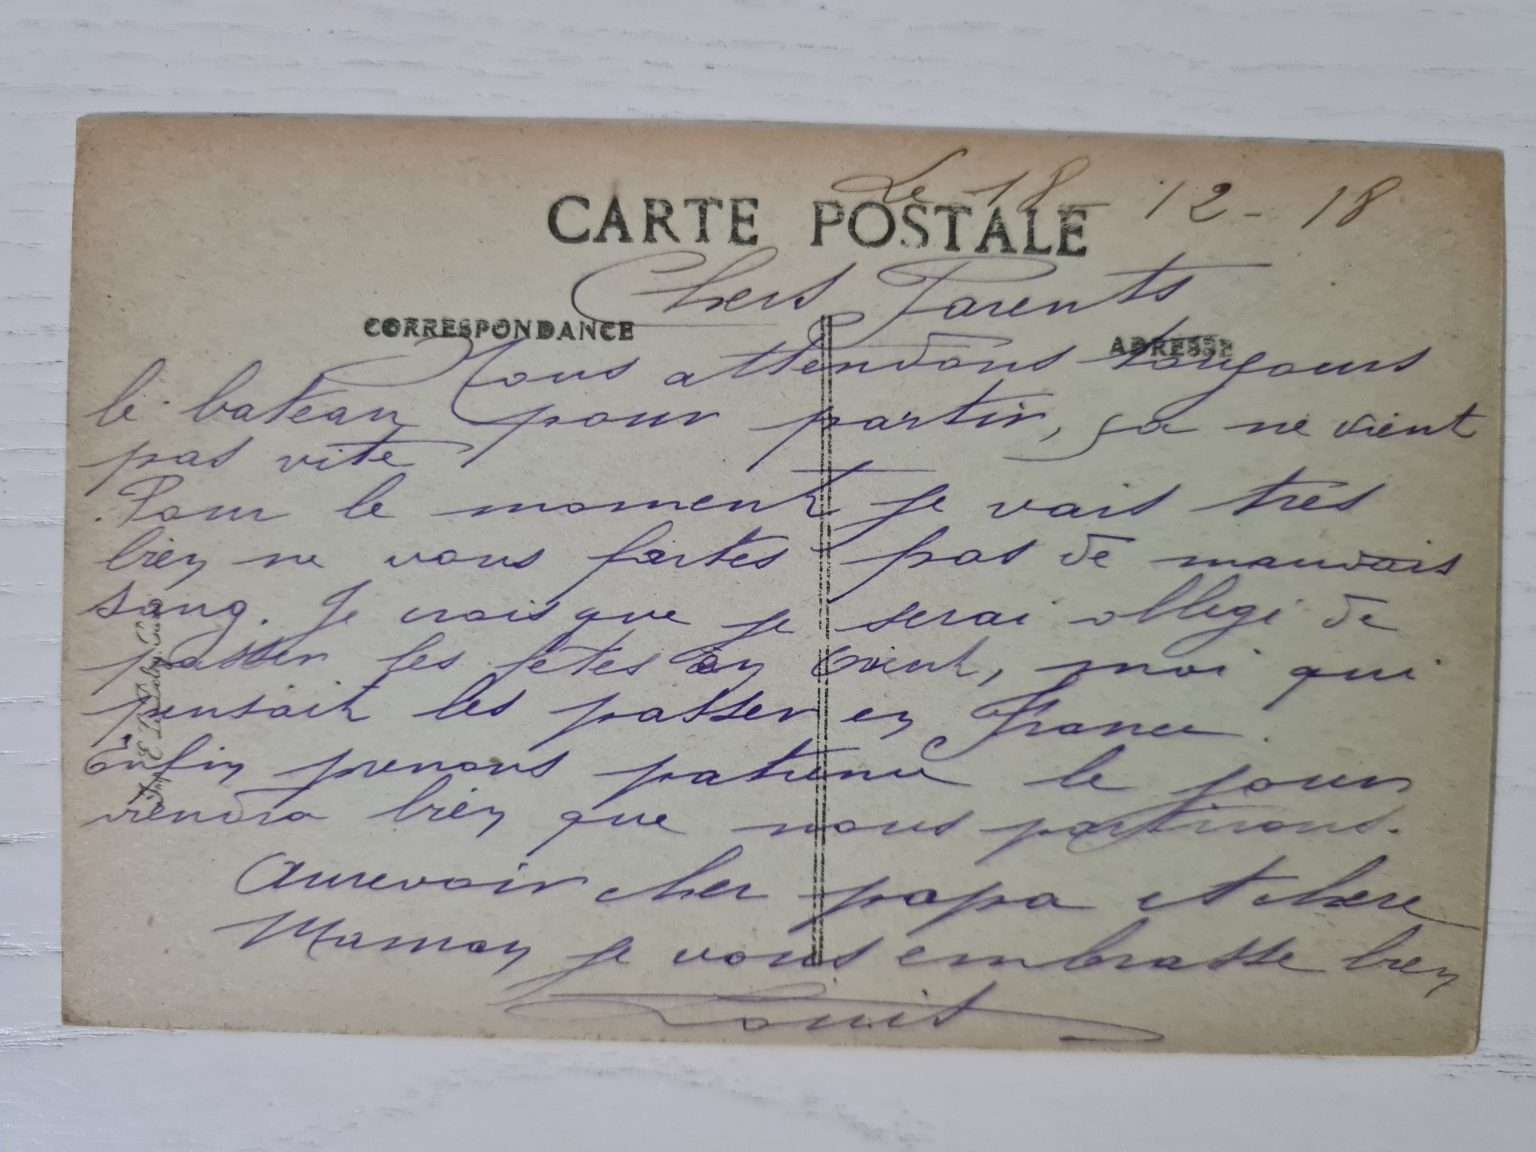 Le 18 - 12 - 18
CARTE POSTALE
Chers Parents
CORRESPONDANCE
ADRESSE
Nous attendons toujours
le bateau pour partir, ça ne vient
pas vite
Pour le moment je vais tres
bien ne vous faites pas de mauvais
sang. Je crois que je serai obligé de
passer les fêtes en Orient, moi qui
pensait les passer en France.
Enfin prenons patience le jour
viendra bien que nous partirons.
Aurevoir cher papa et chere
Maman je vous embrasse bien
Louis
Imp. E.